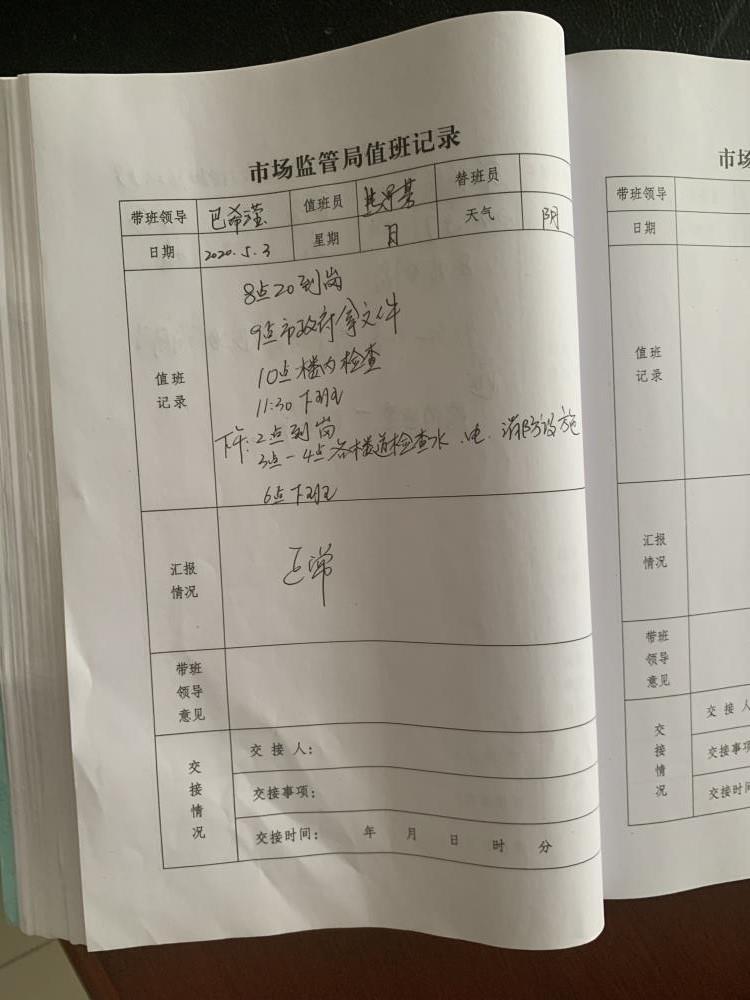 市场监管局值班记录
带班领导 巴希滢 值班员 替班员
日期 2020.5.3 星期 日 天气 阴
值班记录
8点20到岗
9点市政府拿文件
10点楼内检查
11:30下班
下午:2点到岗
3点-4点各楼道检查水、电、消防设施
6点下班
汇报情况
正常
带班领导意见
交接情况
交接人:
交接事项:
交接时间: 年 月 日 时 分
市场
带班领导
日期
值班记录
汇报情况
带班领导意见
交接情况
交接人
交接事项
交接时间